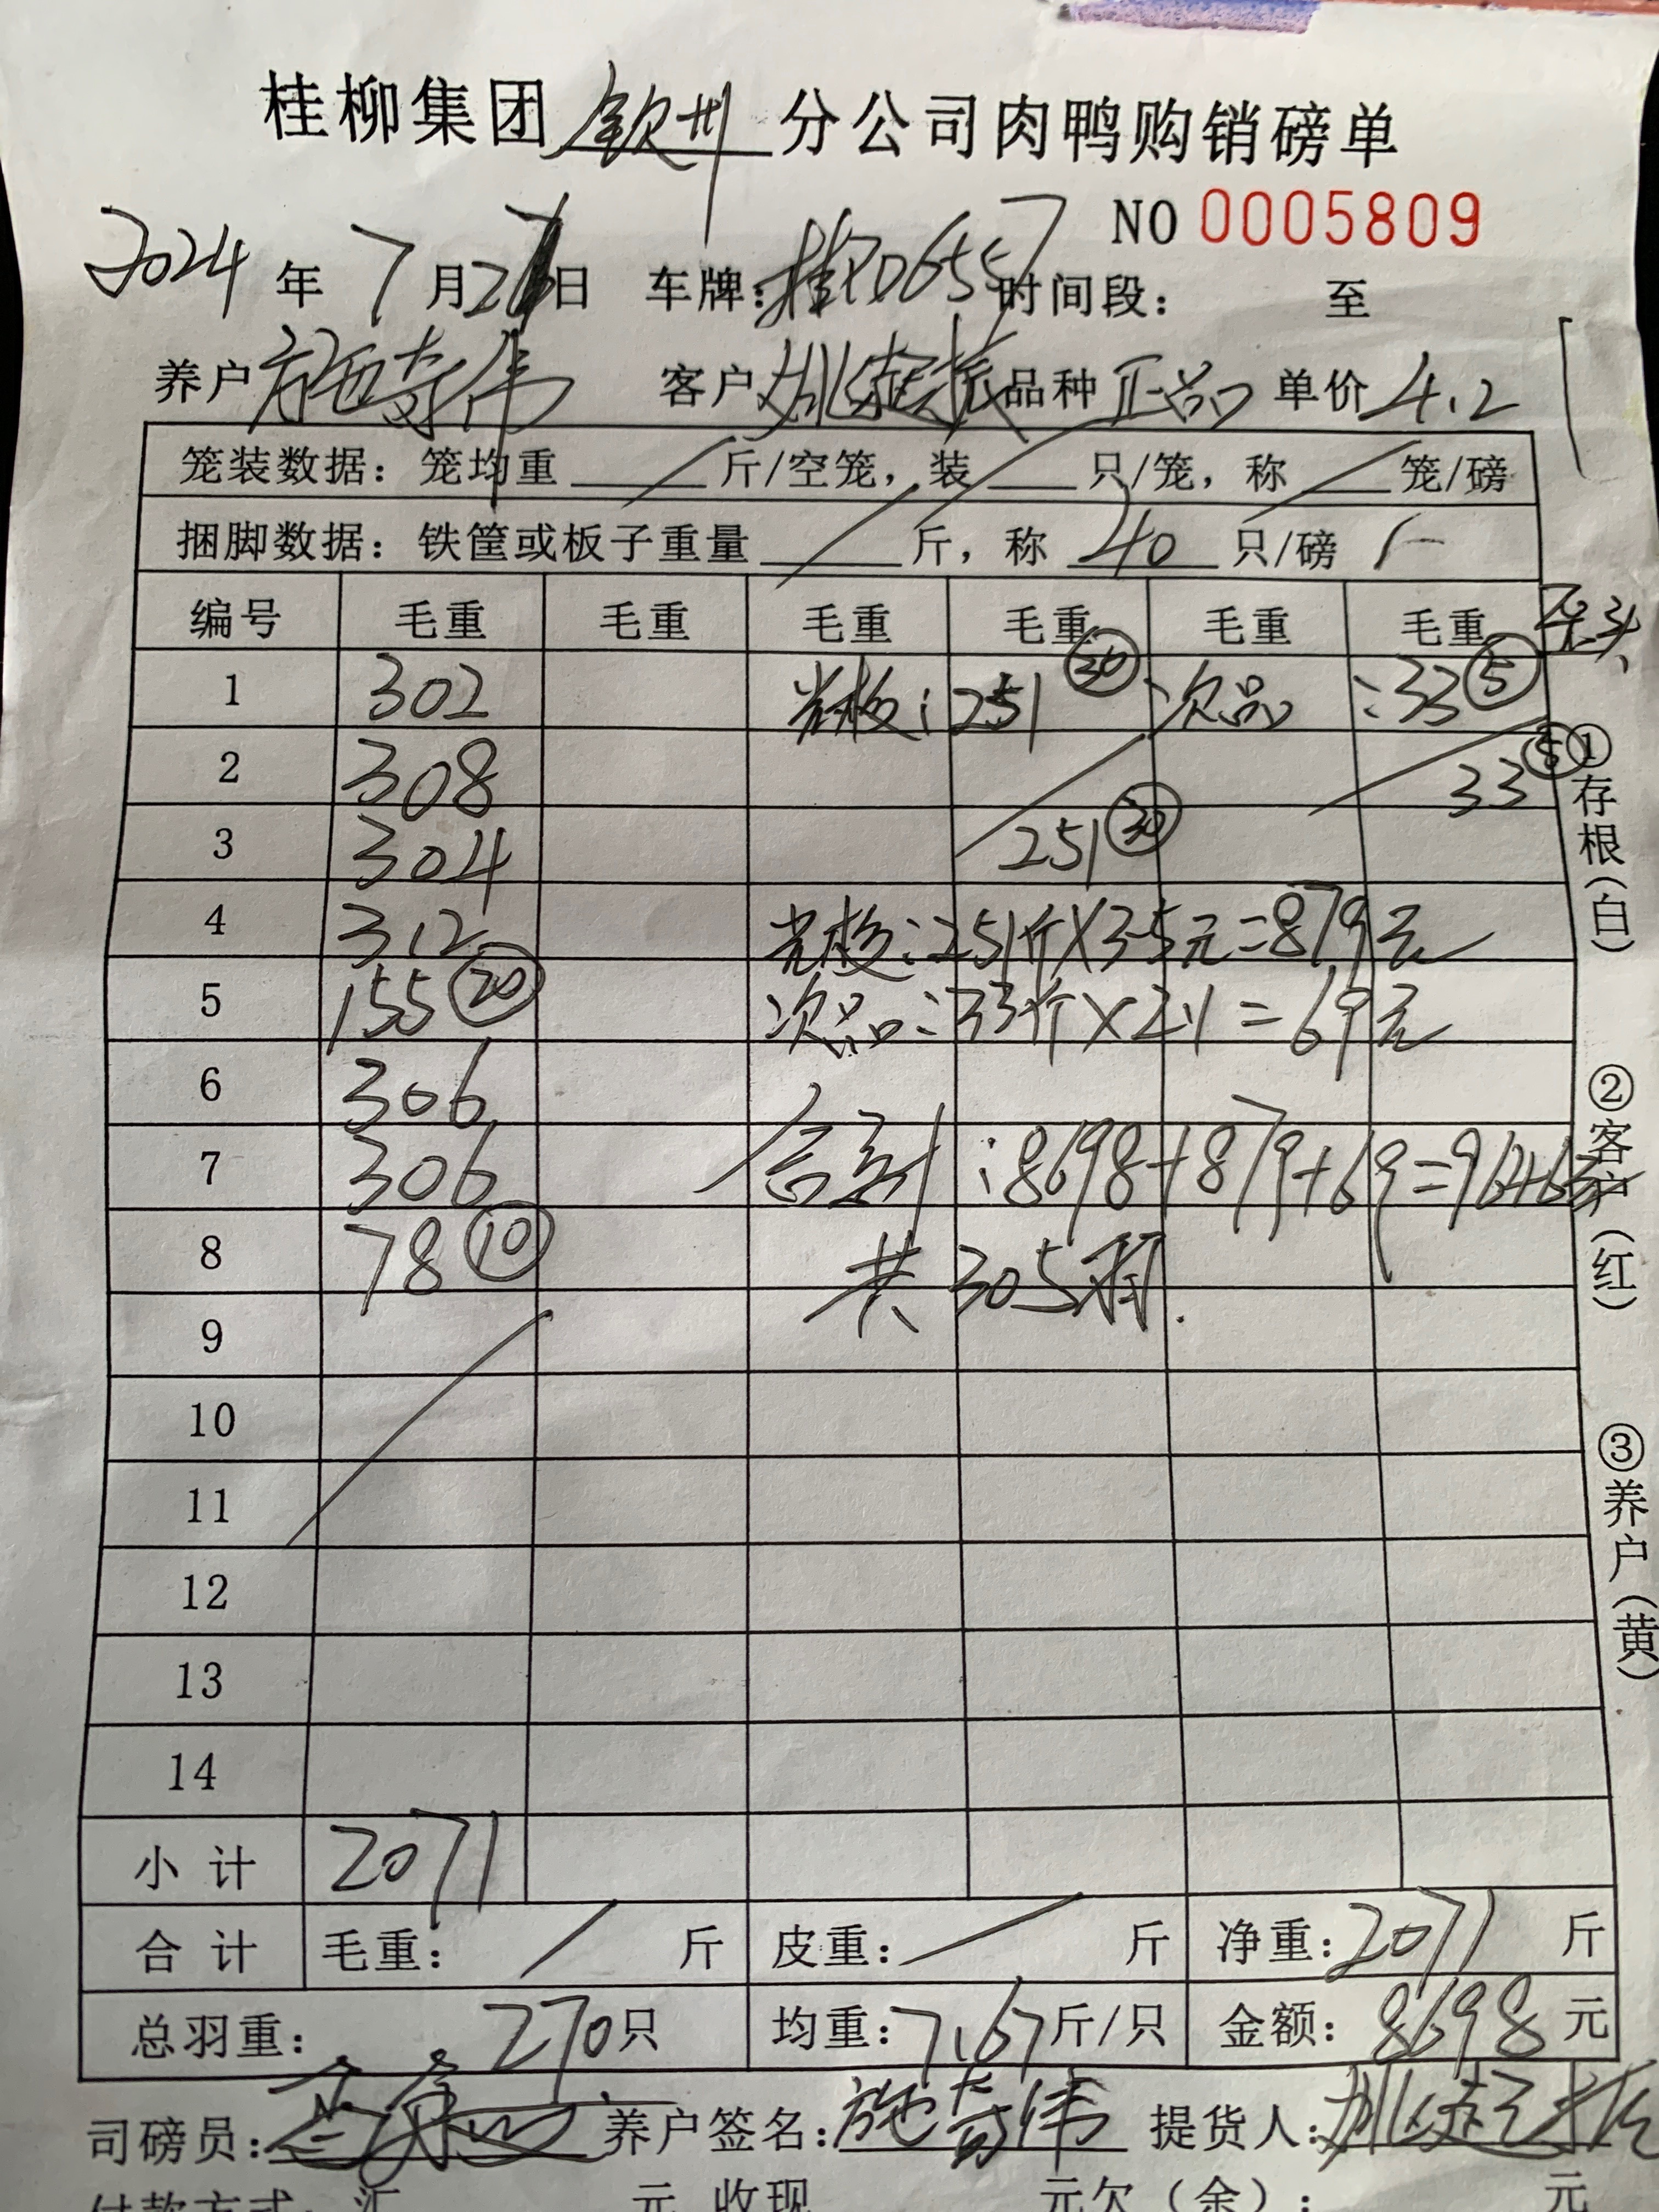 桂柳集团钦州分公司肉鸭购销磅单
NO 0005809
2024年7月2日 车牌:桂R06557 时间段: 至
养户施奇伟 客户姚起振 品种正品 单价4.2
笼装数据: 笼均重 斤/空笼, 装 只/笼, 称 笼/磅
捆脚数据: 铁筐或板子重量 斤, 称 40 只/磅
编号 毛重 毛重 毛重 毛重 毛重 毛重
1 302 : 251 ㉚ 次品 : 33 ⑤
2 308 33 ⑤
3 304 251 ㉚
4 312 : 251斤×3.5元=879元
5 155 ⑳ 次品: 33斤×2.1=69元
6 306
7 306 合计: 8698+879+69=9646元
8 78 ⑩ 共305羽.
9
10
11
12
13
14
小计 2071
合计 毛重: 斤 皮重: 斤 净重: 2071 斤
总羽重: 270只 均重: 7.67斤/只 金额: 8698元
司磅员: 养户签名: 施奇伟 提货人: 姚起振
付款方式: 汇 元 收现 元欠(余): 元
①存根(白)
②客户(红)
③养户(黄)